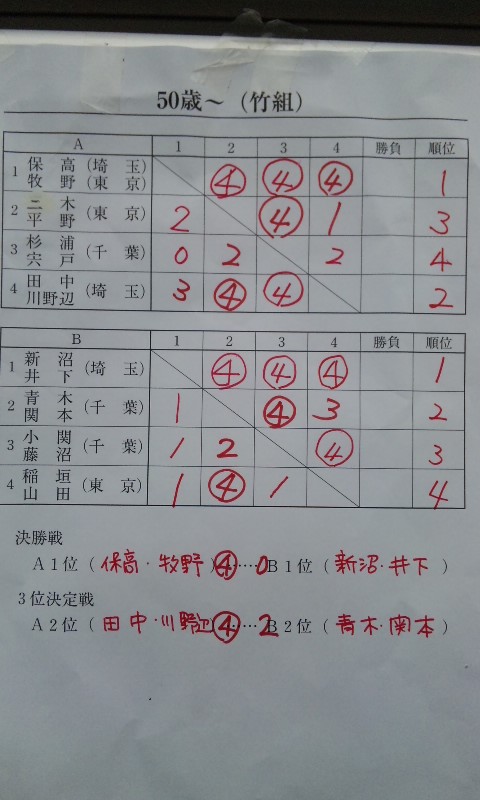 50歳～（竹組）
A 1 2 3 4 勝負 順位
1 保高（埼玉） ④ ④ ④ 1
牧野（東京）
2 二木（東京） 2 ④ 1 3
平野
3 杉浦（千葉） 0 2 2 4
宍戸
4 田中（埼玉） 3 ④ ④ 2
川野辺
B 1 2 3 4 勝負 順位
1 新沼（埼玉） ④ ④ ④ 1
井下
2 青木（千葉） 1 ④ 3 2
関本
3 小関（千葉） 1 2 ④ 3
藤沼
4 稲垣（東京） 1 ④ 1 4
山田
決勝戦
A1位（保高・牧野）④……0 B1位（新沼・井下）
3位決定戦
A2位（田中・川野辺）④……2 B2位（青木・関本）